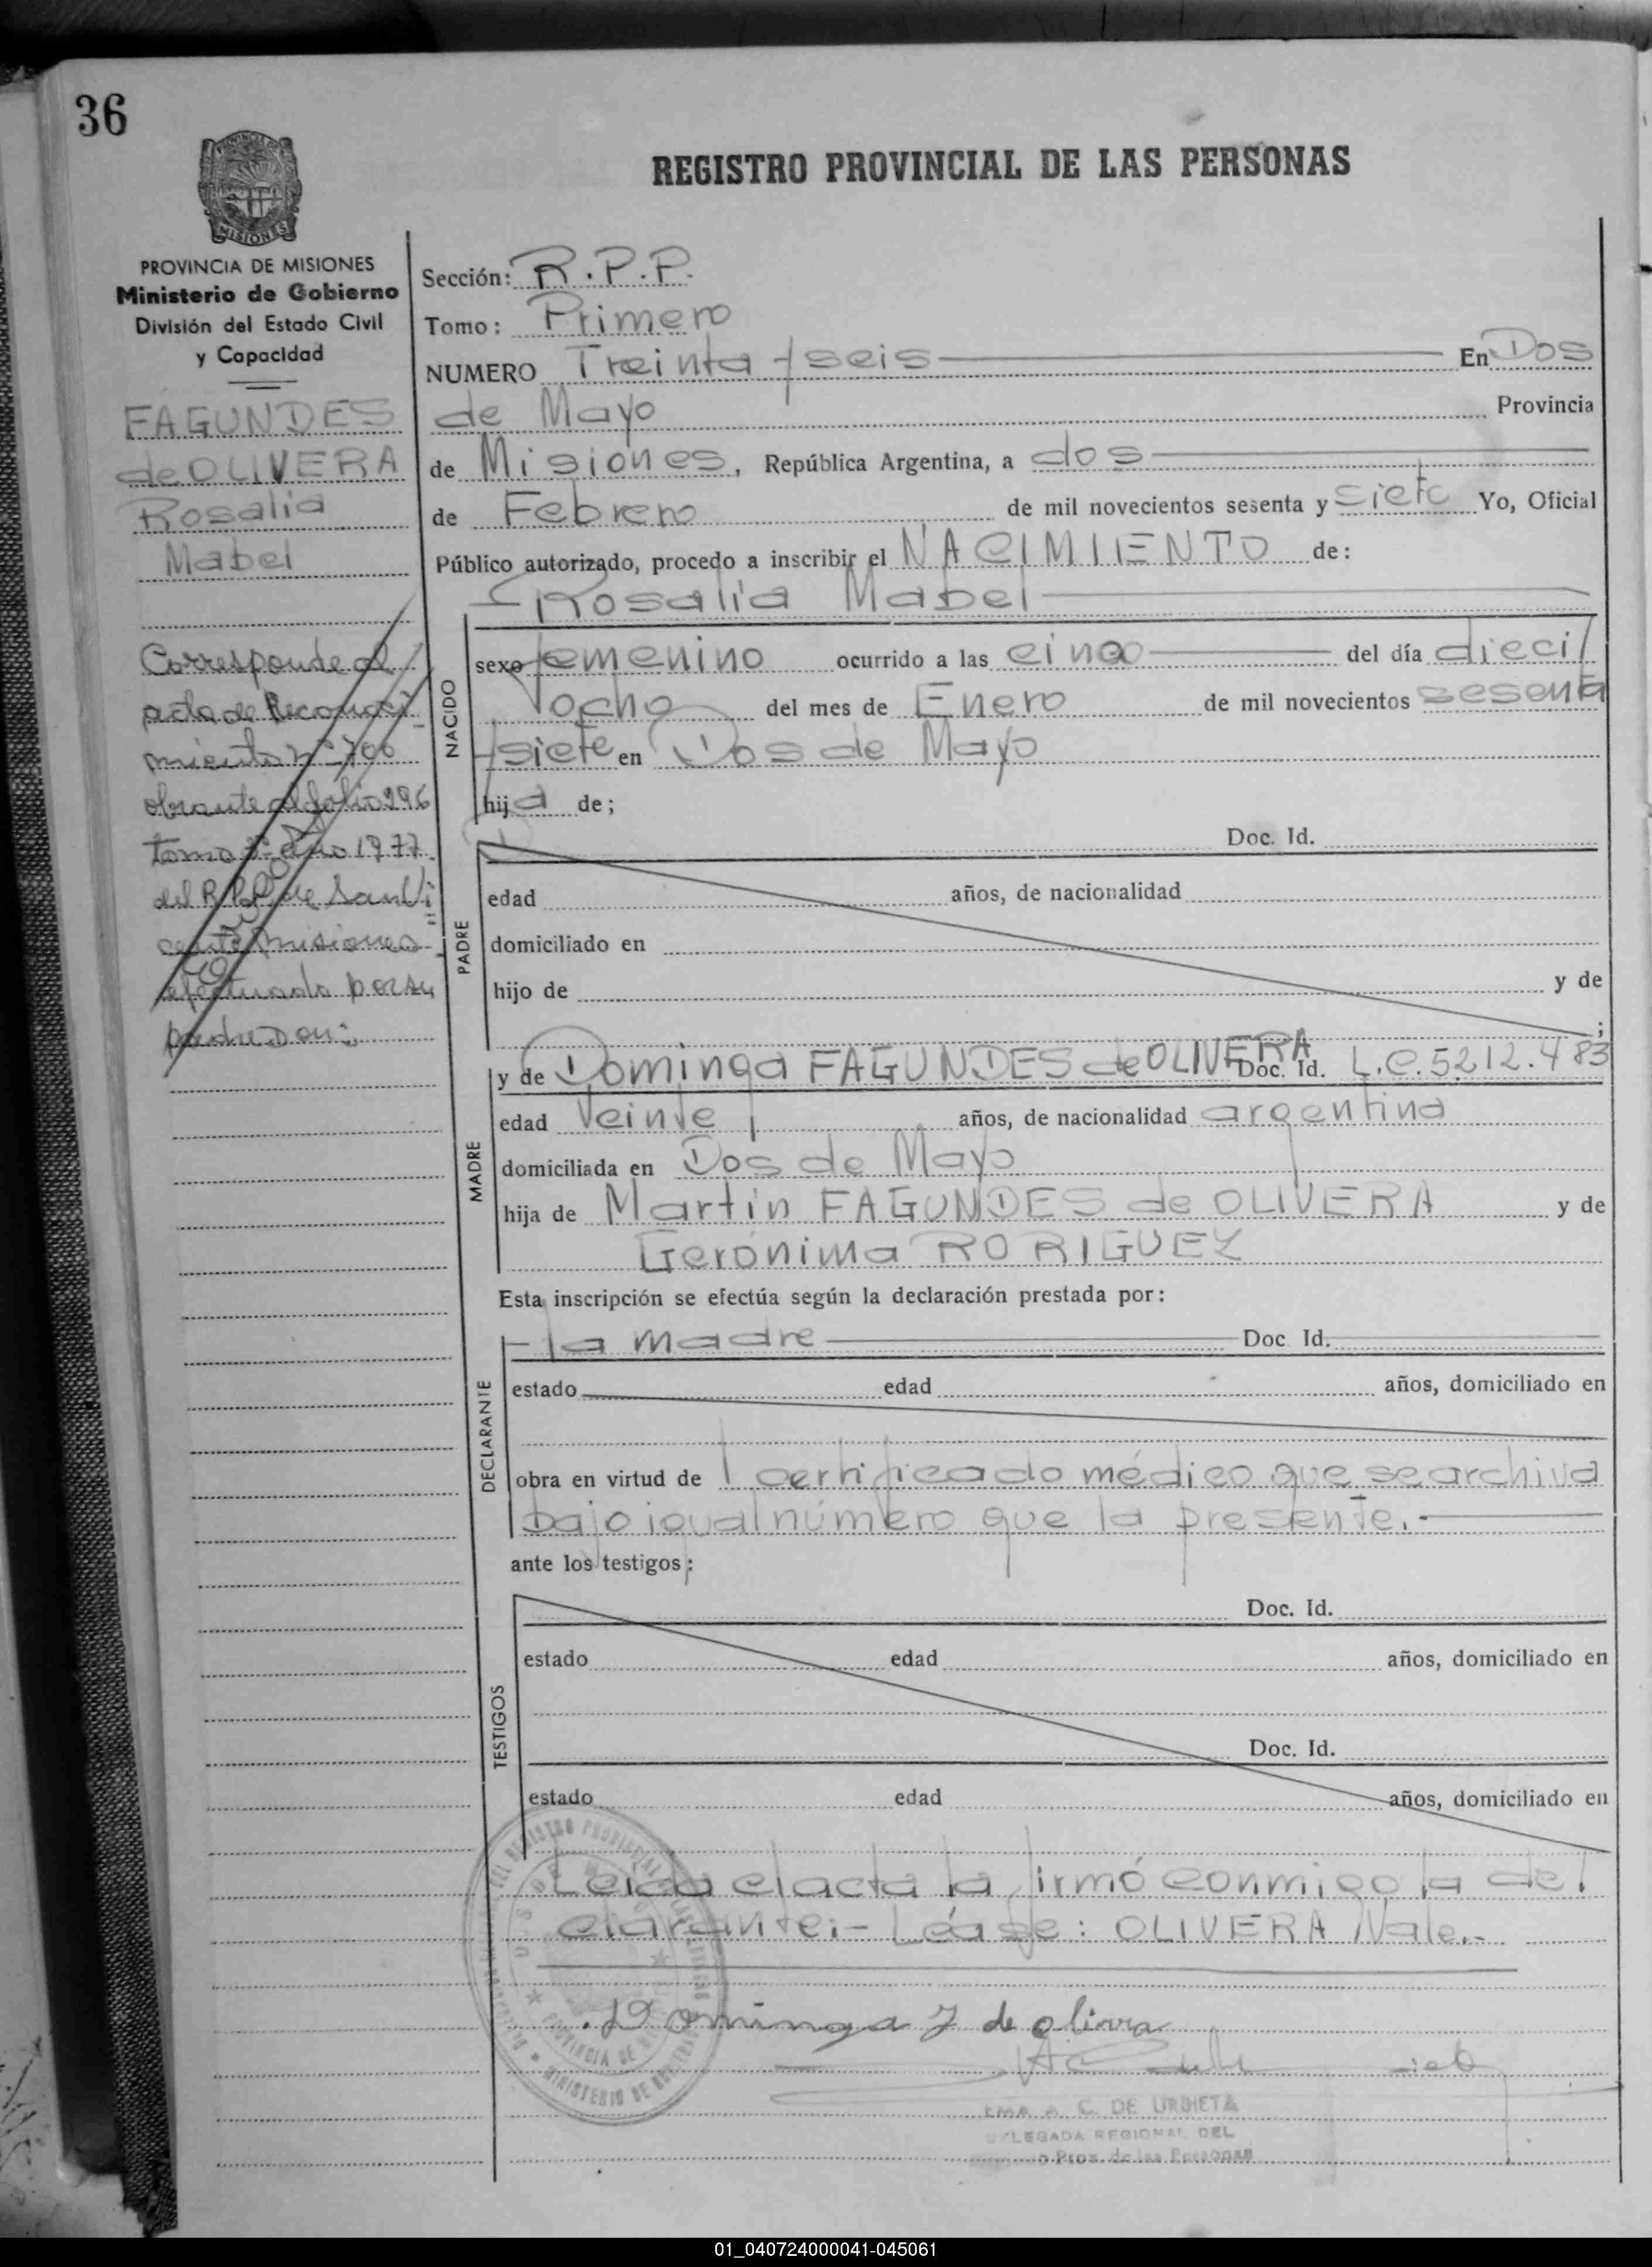 36
REGISTRO PROVINCIAL DE LAS PERSONAS
MISIONES
PROVINCIA DE MISIONES
Ministerio de Gobierno
División del Estado Civil
y Capacidad
FAGUNDES
de OLIVERA
Rosalia
Mabel
Corresponde al
acta de Reconoci
miento Nº 706
obrante al folio 296
tomo año 1977
del de San Vi
cente Misiones
efectuado por su
padre Don:
Sección: R.P.P.
Tomo: Primero
NUMERO Treinta y seis En Dos
de Mayo Provincia
de Misiones, República Argentina, a dos
de Febrero de mil novecientos sesenta y siete Yo, Oficial
Público autorizado, procedo a inscribir el NACIMIENTO de:
Rosalia Mabel
NACIDO
sexo femenino ocurrido a las cinco del día dieci
ocho del mes de Enero de mil novecientos sesenta
y siete en Dos de Mayo
hija de;
PADRE
Doc. Id.
edad años, de nacionalidad
domiciliado en
hijo de y de
;
MADRE
y de Dominga FAGUNDES de OLIVERA Doc. Id. L.C. 5212.483
edad Veinte años, de nacionalidad argentina
domiciliada en Dos de Mayo
hija de Martín FAGUNDES de OLIVERA y de
Gerónima RORIGUEZ
Esta inscripción se efectúa según la declaración prestada por:
DECLARANTE
la madre Doc. Id.
estado edad años, domiciliado en
obra en virtud de certificado médico que se archiva
bajo igual número que la presente.-
ante los testigos:
TESTIGOS
Doc. Id.
estado edad años, domiciliado en
Doc. Id.
estado edad años, domiciliado en
Leida el acta la firmó conmigo la de
clarante:- Léase: OLIVERA Vale.-
Dominga F de olivra
A. C. DE URBIETA
DELEGADA REGIONAL DEL
Prov. de las Personas
01_040724000041-045061